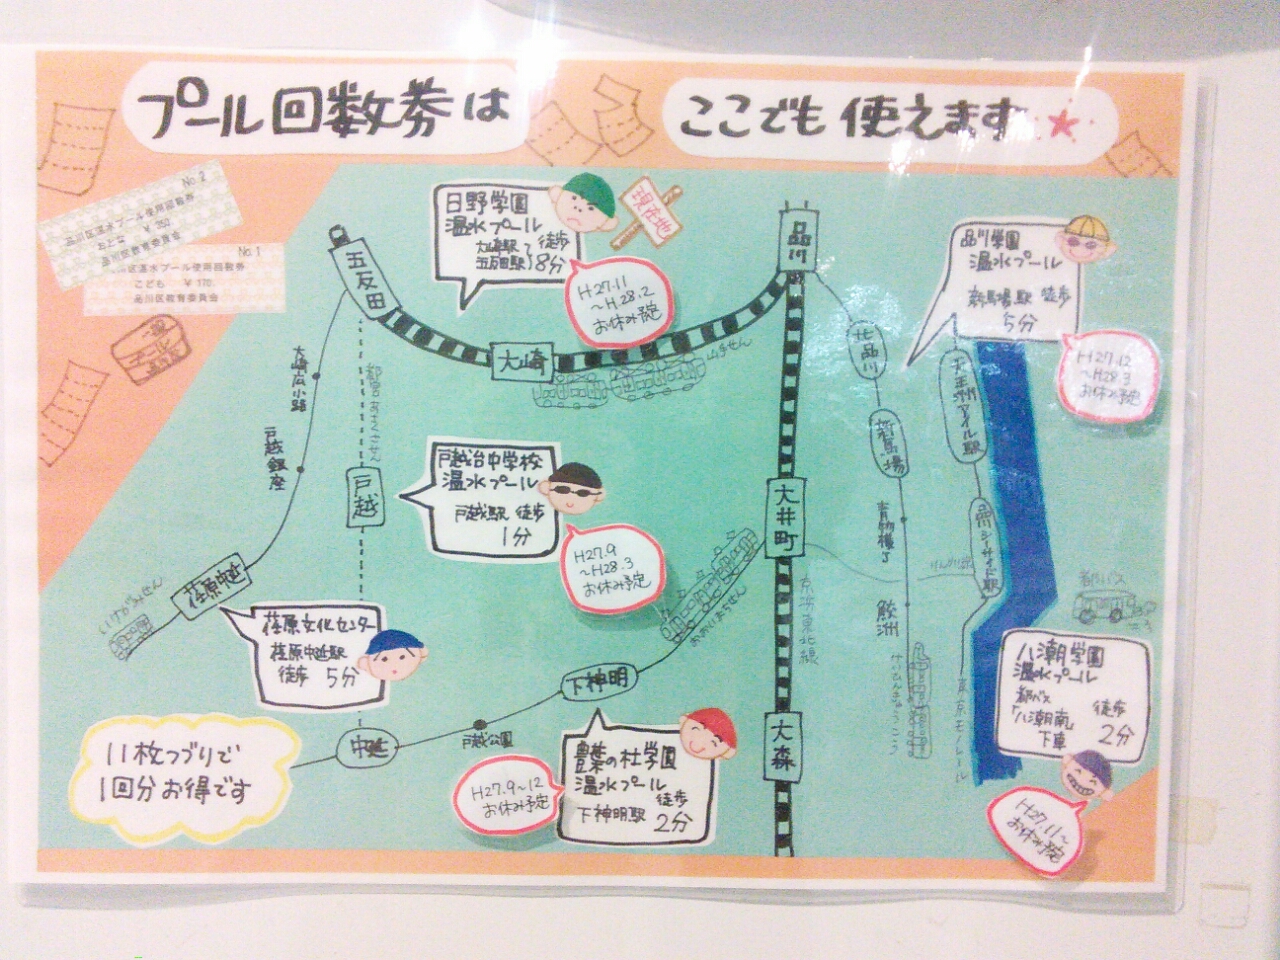 プール回数券は
ここでも使えます★
No.2
品川区温水プール使用回数券
おとな ¥350
品川区教育委員会
No.1
品川区温水プール使用回数券
こども ¥170
品川区教育委員会
日野学園
温水プール
大崎駅
五反田駅
徒歩
8分
現在地
H27.11
～H28.2
お休み予定
品川
品川学園
温水プール
新馬場駅 徒歩
5分
H27.12
～H28.3
お休み予定
五反田
大崎
山手せん
北品川
天王洲アイル駅
大崎広小路
都営あさくさせん
戸越銀座
戸越
戸越台中学校
温水プール
戸越駅 徒歩
1分
H27.9
～H28.3
お休み予定
大井町
新馬場
青物横丁
品川シーサイド駅
りんかい線
都バス
いけがみせん
荏原中延
荏原文化センター
荏原中延駅
徒歩 5分
おおいまちせん
京浜東北線
鮫洲
けいひんきゅうこう
東京モノレール
八潮学園
温水プール
都バス
「八潮南」
下車
徒歩
2分
H27.11～
お休み予定
下神明
戸越公園
中延
豊葉の杜学園
温水プール
下神明駅
徒歩
2分
H27.9～12
お休み予定
大森
11枚つづりで
1回分お得です